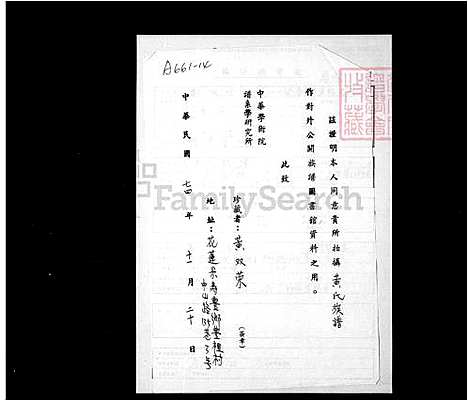 A661-14
茲證明本人同意貴所拍攝黃氏族譜
作對外公開族譜圖書館資料之用。
此致
中華學術院
譜系學研究所
珍藏者:黃双榮
(簽章)
地址:花蓮縣壽豐鄉豐裡村
中山路
中華民國 七四 年 十一 月 二十 日
FamilySearch